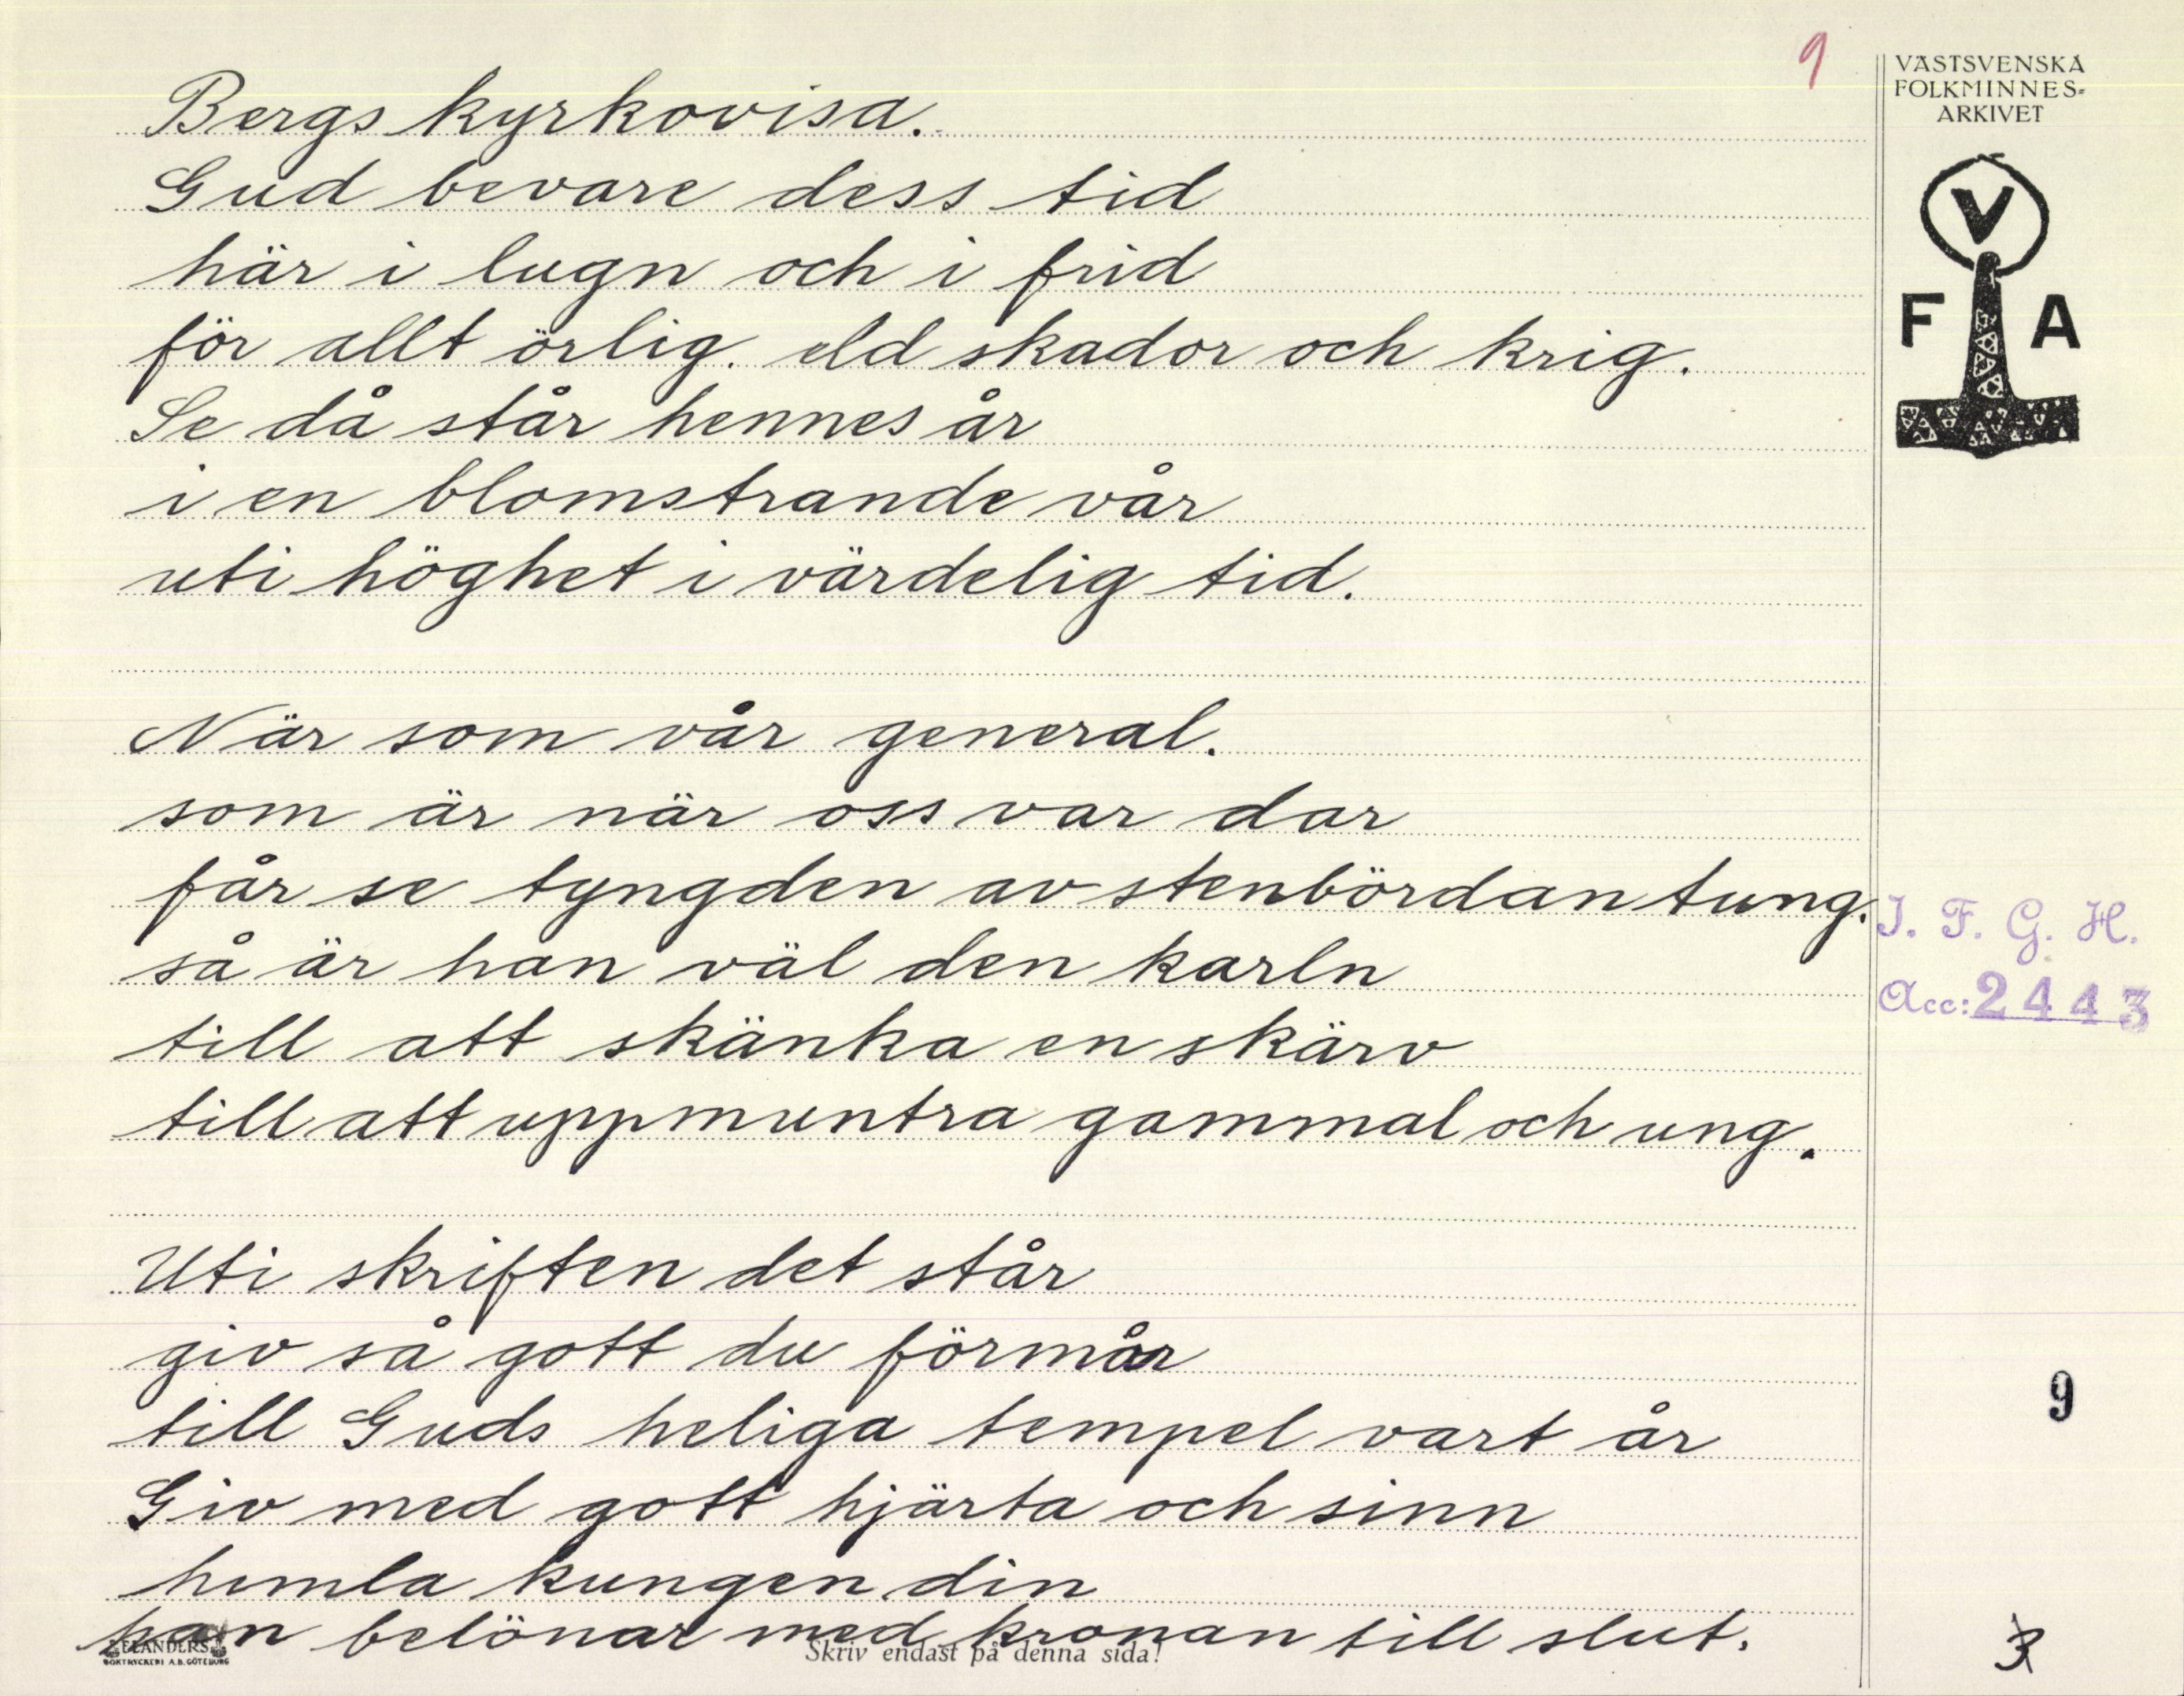 9
Bergs kyrkovisa.
Gud bevare dess tid
här i lugn och i frid
för allt örlig. eld skador och krig.
Se då står hennes år
i en blomstrande vår
uti höghet i värdelig tid.
När som vår general.
som är när oss var dar
får se tyngden av stenbördan tung.
så är han väl den karln
till att skänka en skärv
till att uppmuntra gammal och ung.
Uti skriften det står
giv så gott du förmår
till Guds heliga tempel vart år
Giv med gott hjärta och sinn
himla kungen din
han belönar med kronan till slut.
ELANDERS
BOKTRYCKERI A.B. GÖTEBORG
Skriv endast på denna sida!
VÄSTSVENSKA
FOLKMINNES-
ARKIVET
V
F A
I. F. G. H.
Acc: 2443
9
3